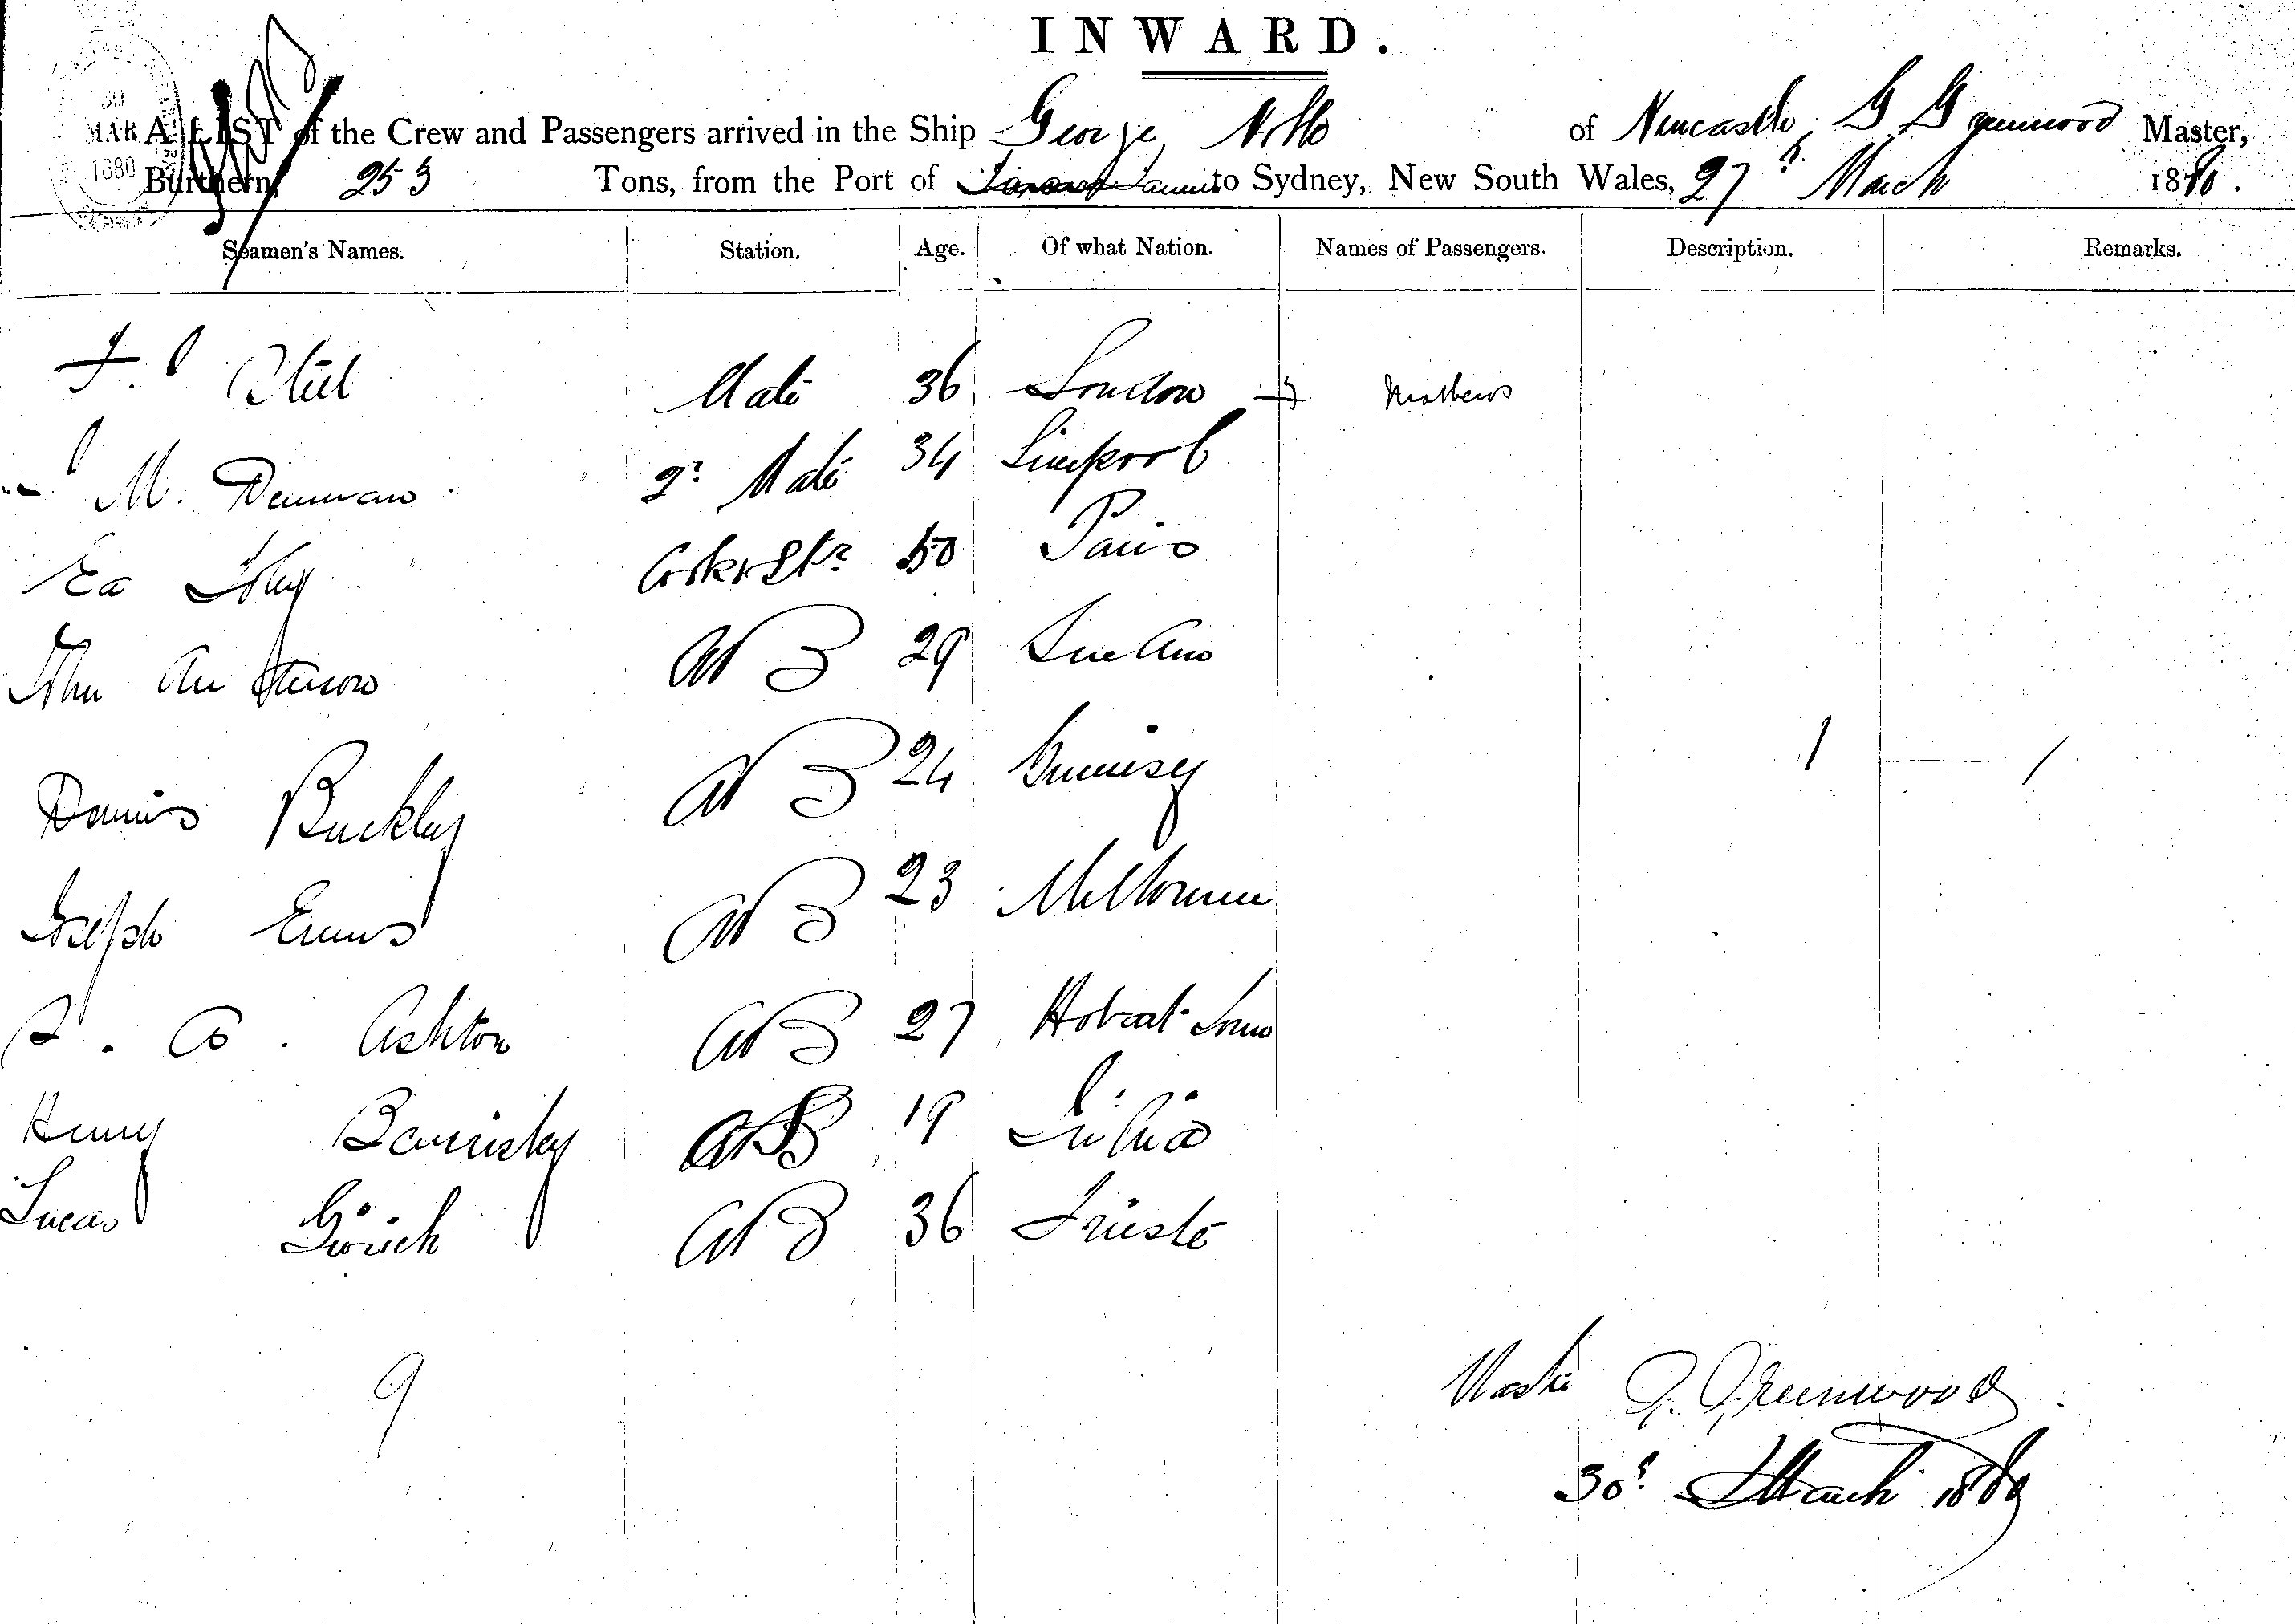 INWARD.
30 MAR 1880
A LIST of the Crew and Passengers arrived in the Ship George Noble of Newcastle, G Greenwood Master,
Burthern, 253 Tons, from the Port of to Sydney, New South Wales, 27th March 1880.
Seamen's Names. Station. Age. Of what Nation. Names of Passengers. Description. Remarks.
F. Steel Mate 36 London Mathews
M. Denman 2d Mate 34 Liverpool
Ed Cook & Std 50 Paris
John Anderson AB 29 Sweden
Dennis Buckley AB 24 Guernsey
Joseph Evans AB 23 Melbourne
Ashton AB 27 Hobart Town
Henry AB 19
Lucas AB 36 Trieste
9
Master G. Greenwood
30th March 1880